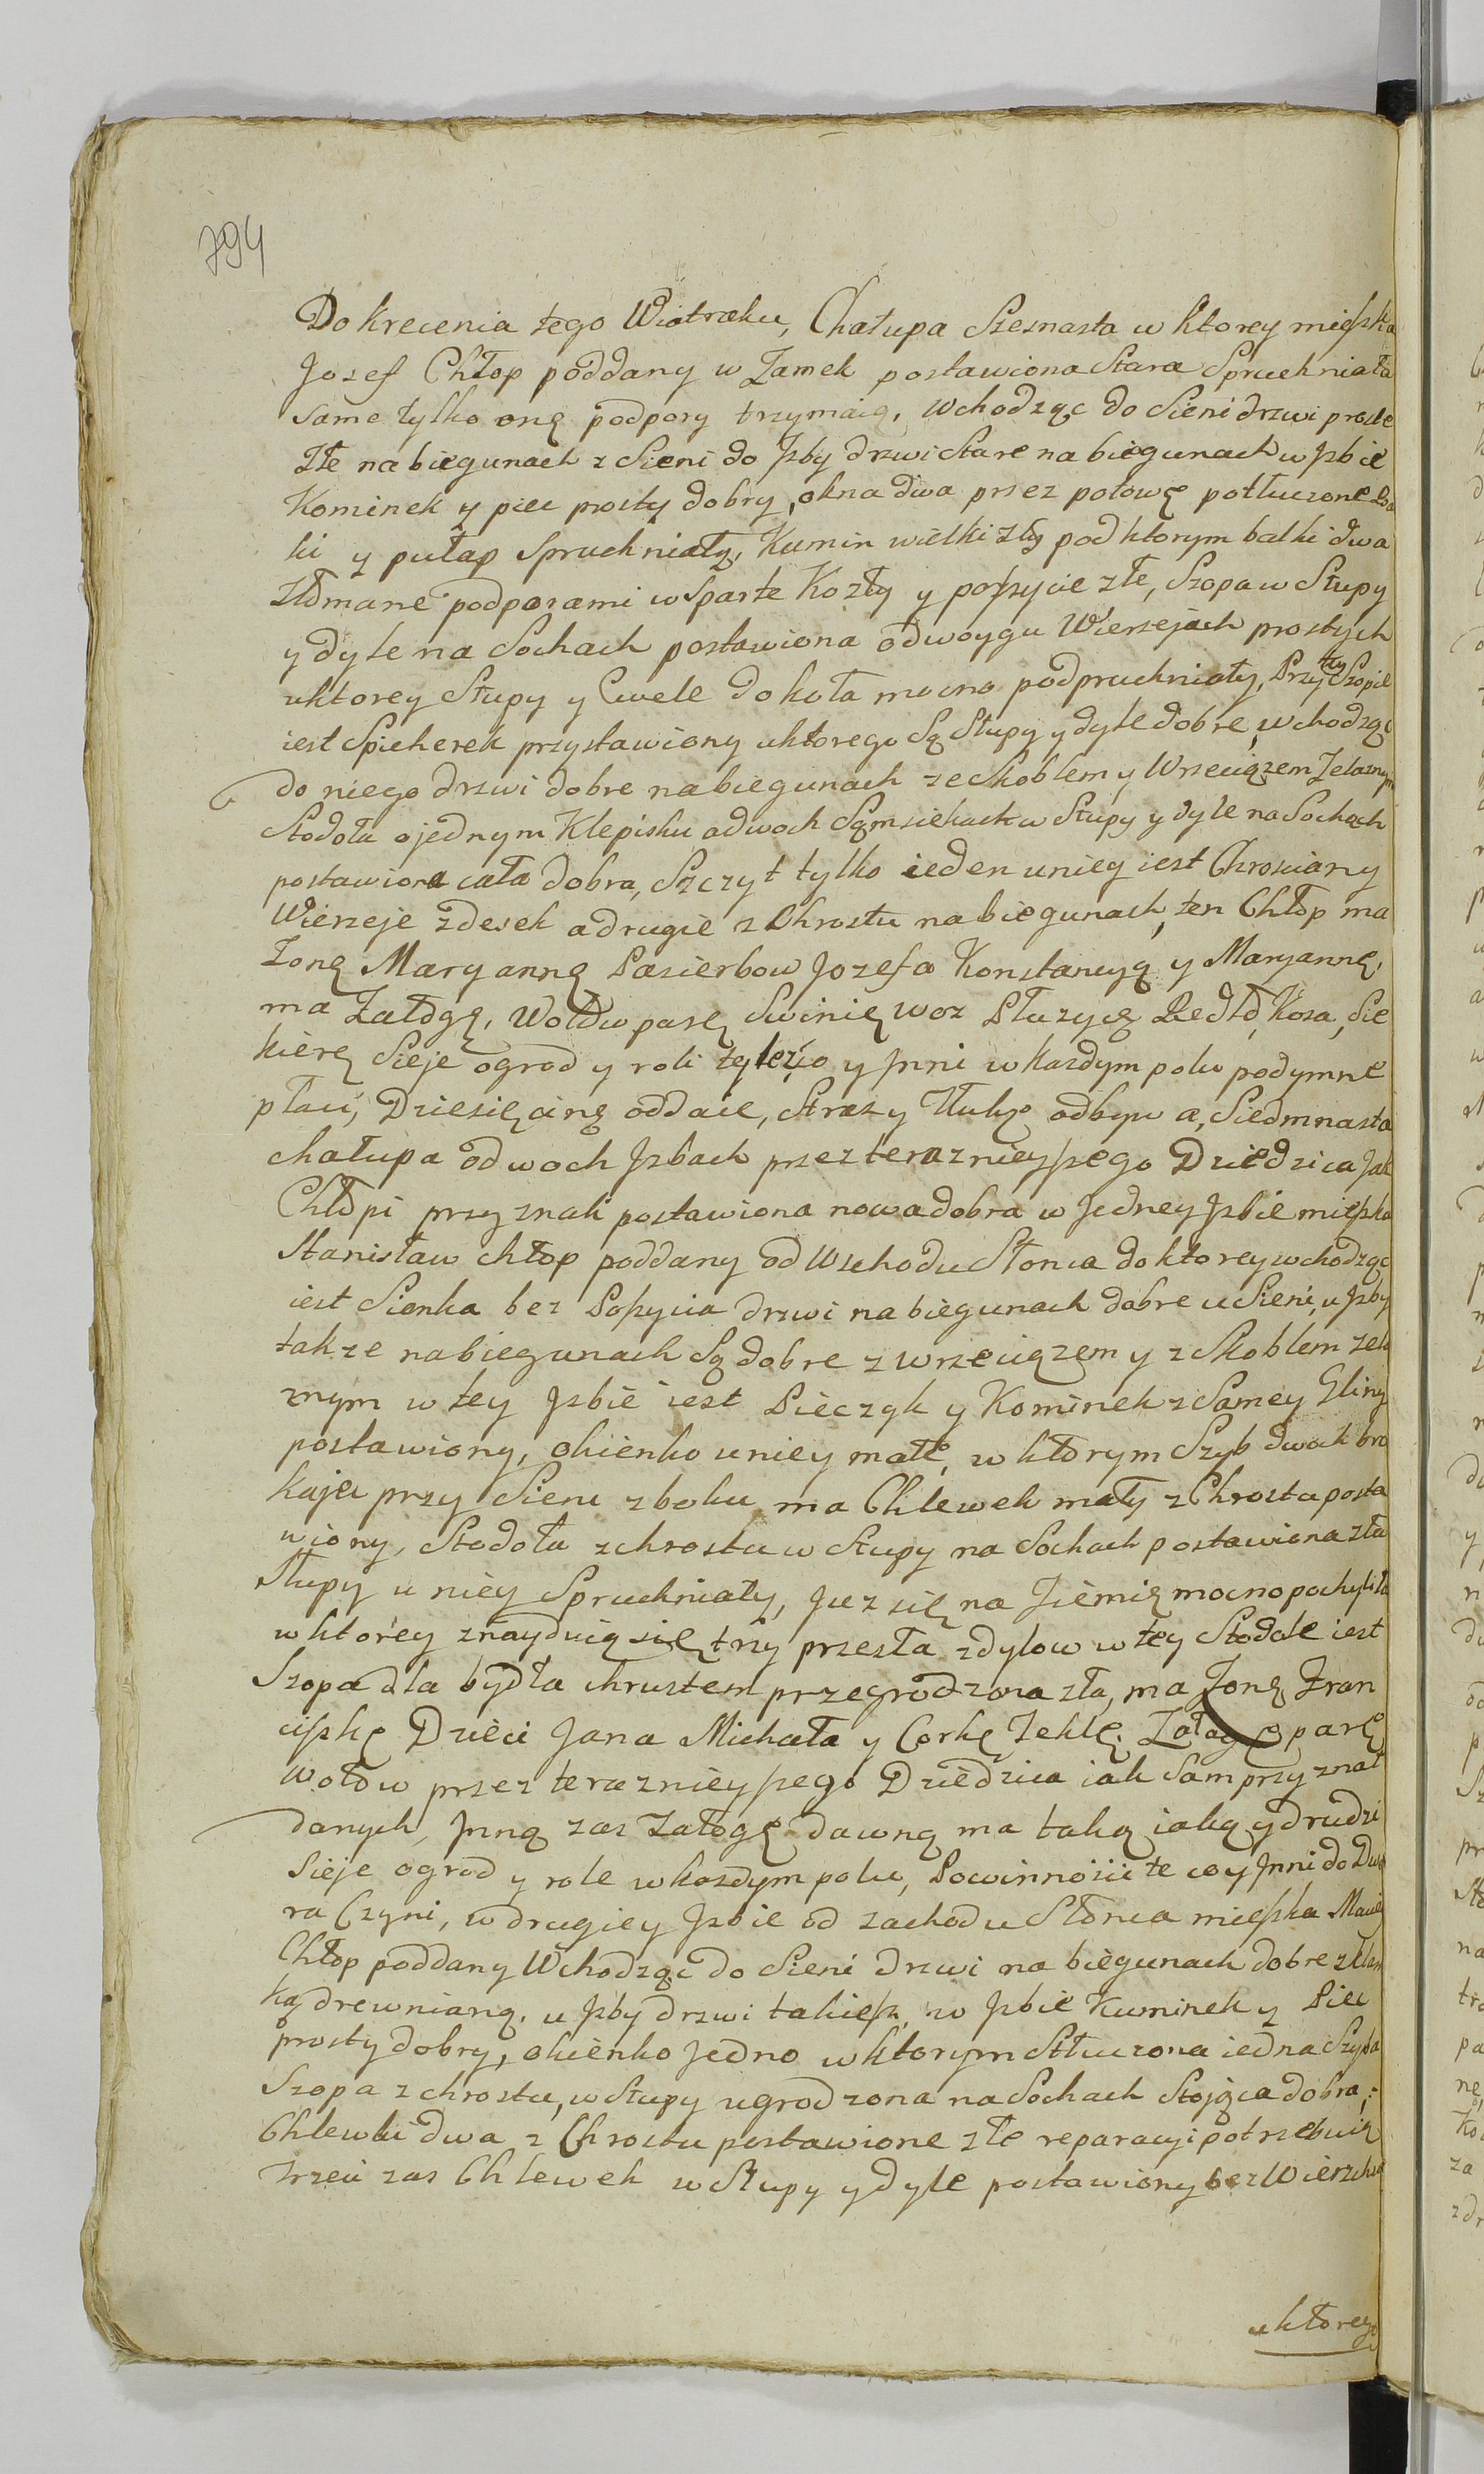 794
Do krecenia tego Wiatraku, Chałupa Szesnasta w ktorey mieszka
Jozef Chłop poddany w Zamek postawiona Stara Spruchniała
same tylko onę podpory trzymaią, wchodząc do Sieni drzwi proste
złe na biegunach z Sieni do Jzby drzwi stare na biegunach w Jzbie
Kominek y piec prosty dobry, okna dwa przez połowę potłuczone Bal
ki y pułap spruchniały, Kumin wielki zły pod ktorym balki dwa
złómane podporami wsparte Kozły y poszycie złe, Szopa w Słupy
y dyle na Sochach postawiona o dwoygu Wierzejach prostych
u ktorey Słupy y Cwele do koła mocno podpruchniały, Przy tey Szopie
iest Spicherek przystawiony u ktorego Są Słupy y dyle dobre, wchodząc
do niego drzwi dobre na biegunach ze Skoblem y Wrzeciązem Zelaznym
Stodoła o jednym Klepisku o dwoch Sąmsiekach w Słupy y dyle na Sochach
postawiona cała dobra, Szczyt tylko ieden u niey iest Chrosciany
Wierzeje z desek a drugie z Chrostu na biegunach, ten Chłop ma
Zonę Maryannę Pasierbow Jozefa Konstancyą y Maryannę,
ma Załogę, Wołów parę Swinię woz Płużycę Redło, Kosa, Sie
kierę Sieje ogrod y roli tyle co y Jnni w kazdym polu podymne
płaci, Dziesięcinę oddaie, Straz y Tłukę odbywa, Siedmnasta
chałupa o dwoch Jzbach przez teraznieyszego Dziedzica Jak
Chłopi przyznali postawiona nowa dobra w Jedney Jzbie mieszka
Stanisław chłop poddany od Wschodu Słonca do ktorey wchodząc
iest Sienka bez Poszycia drzwi na biegunach dobre u Sieni, u Jzby
takze na biegunach Są dobre z wrzeciązem y z Skoblem zela
znym w tey Jzbie iest Pieczyk y Kominek z Samey Gliny
postawiony, okienko u niey małe, w ktorym Szyb dwoch bra
kuje przy Sieni z boku ma Chlewek mały z Chrostu posta
wiony, Stodoła z chrostu w Słupy na Sochach postawiona zła
Słupy u niey Spruchniały, Juz się na Ziemię mocno pochyliła
w ktorey znayduią się trzy przesła z dylow w tey Stodole iest
Szopa dla bydła chrustem przegrodzona zła, ma Zonę Fran
ciszkę Dzieci Jana Michała y Corkę Teklę. Załogę parę
Wołow przez teraznieyszego Dziedzica iak Sam przyznał
danych, Jnną zas Załogę dawną ma taką iaką y drudzi
Sieje ogrod y role w kazdym polu, Powinnoście te co y Jnni do Dwo
ra Czyni, w drugiey Jzbie od zachodu Słonca mieszka Maciey
Chłop poddany Wchodząc do Sieni drzwi na biegunach dobre z klam
ką drewnianą, u Jzby drzwi takiesz, w Jzbie Kuminek y Piec
prosty dobry, okienko Jedno w ktorym Stłuczona iedna Szyba
Szopa z chrostu, w Słupy ugrodzona na Sochach Stojąca dobra,
Chlewki dwa z Chrostu postawione złe reparacyi potrzebuią
Trzeci zas Chlewek w Słupy y dyle postawiony bez Wierzchu
u ktorego